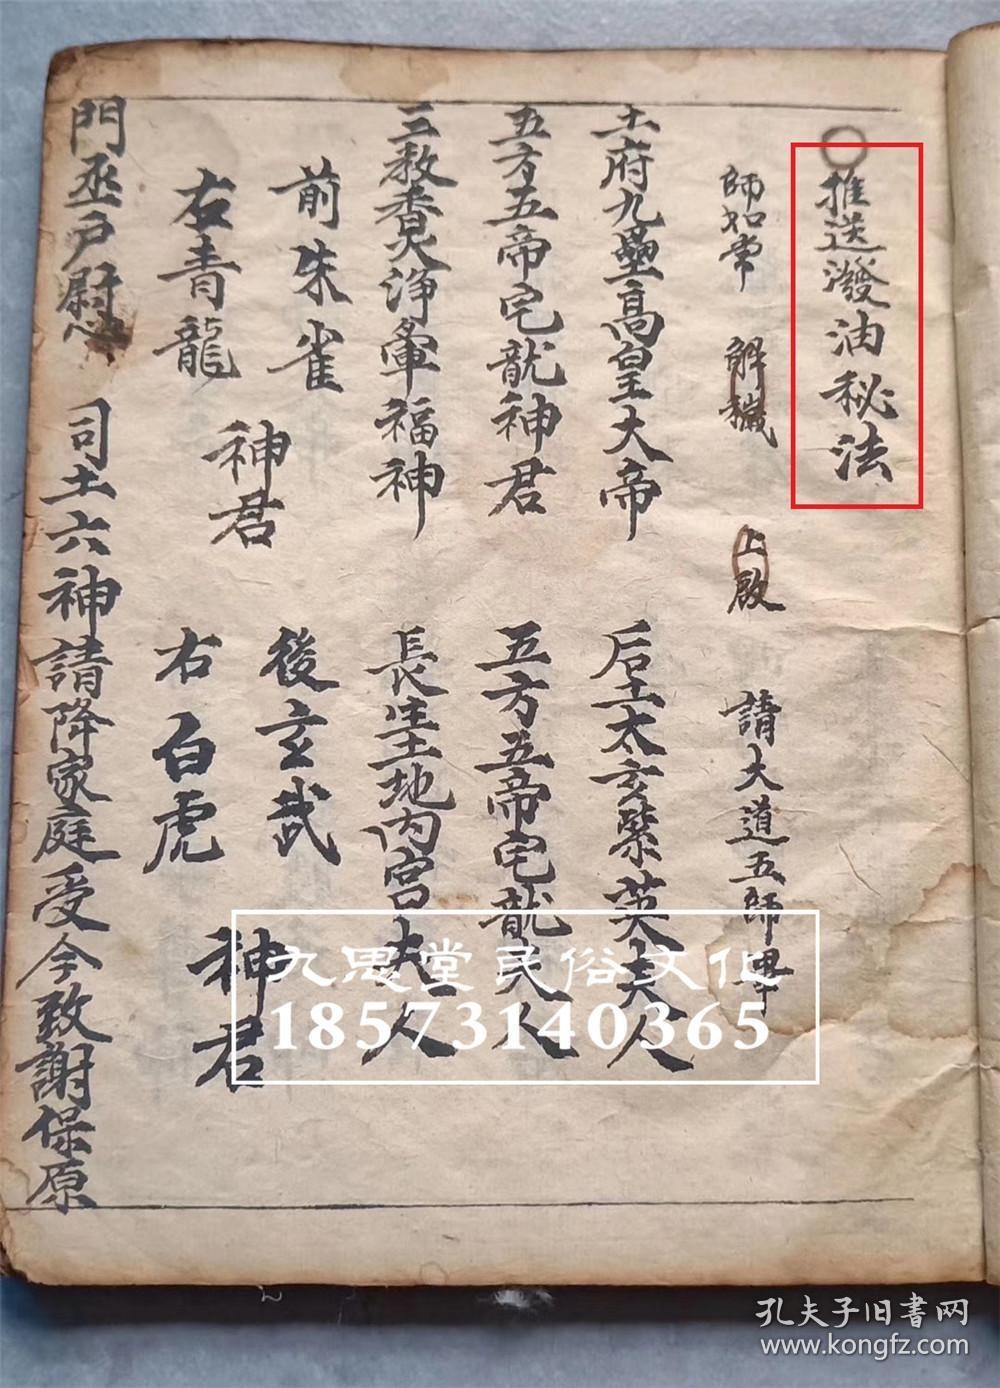 推送潑油秘法
師如常 解穢 上啟 請大道五師
土府九壘高皇大帝 后土太玄紫英夫人
五方五帝宅龍神君 五方五帝宅龍夫人
三教香火淨軍福神 長生土地內宮夫人
前朱雀 後玄武
神君 神君
右青龍 右白虎
門丞戶尉 司土六神請降家庭受今致謝保原
九思堂民俗文化
18573140365
孔夫子旧書网
www.kongfz.com